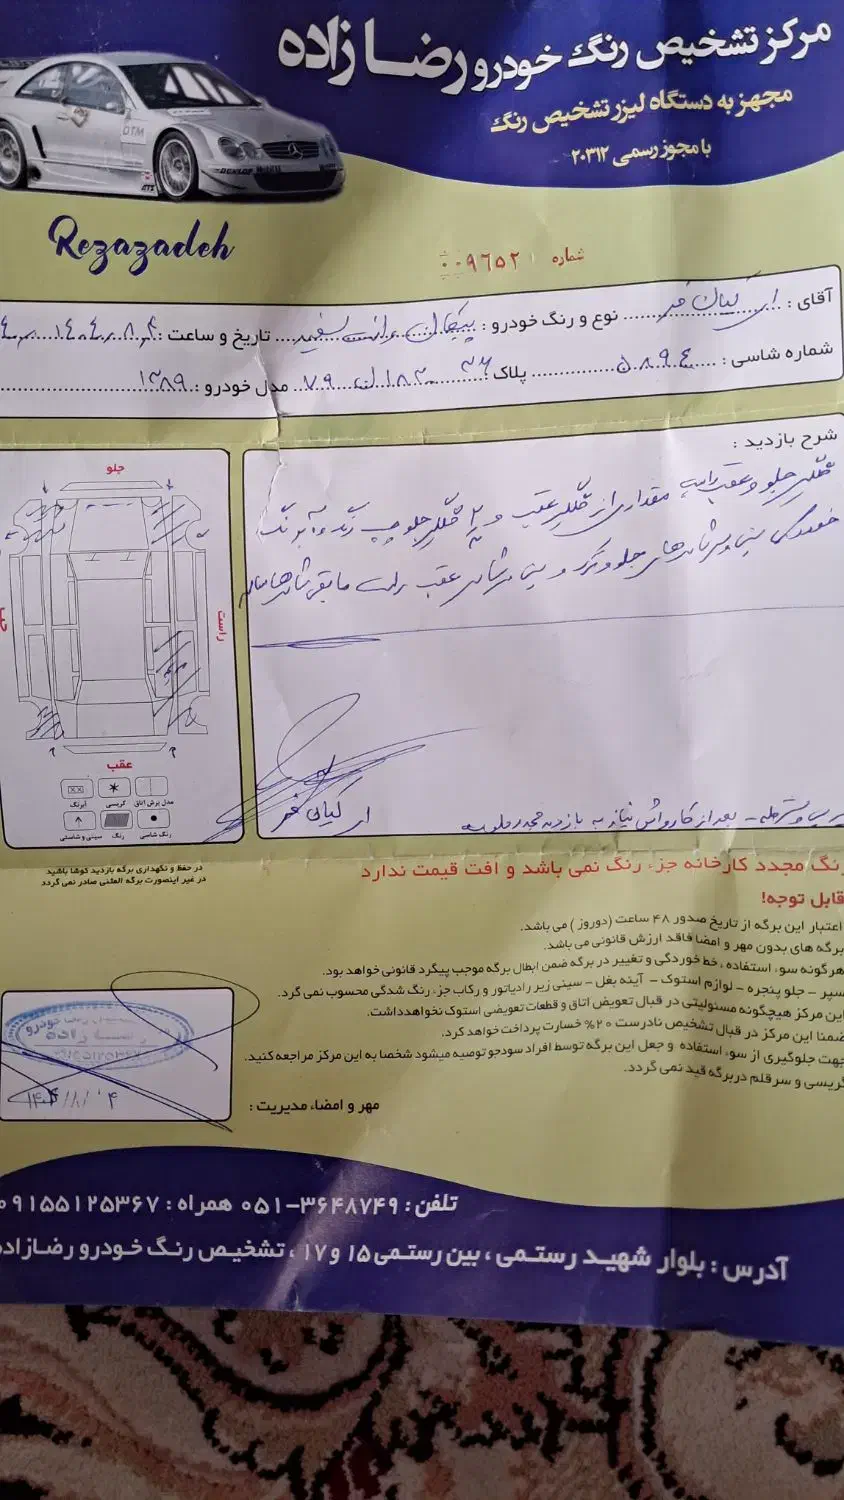 مرکز تشخیص رنگ خودرو رضازاده
مجهز به دستگاه لیزر تشخیص رنگ
با مجوز رسمی ۲۰۳۱۲
Rezazadeh
شماره ۰۰۹۶۵۲
آقای : نوع و رنگ خودرو : پیکان وانت سفید تاریخ و ساعت : ۱۴۰۴/۰۸/۰۴
شماره شاسی : ۵۸۹۴ پلاک : ۳۶ ۱۸۲ ل ۷۹ مدل خودرو : ۱۳۸۹
شرح بازدید :
گلگیر جلو و عقب راست مقداری از گلگیر عقب و گلگیر جلو چپ رنگ
خوردگی سینی و سرشاسی‌های جلو و سینی و سرشاسی عقب
بعد از کارواش نیاز به بازدید مجدد
جلو
راست
چپ
عقب
مدل برش اتاق
گریسی
آبرنگ
رنگ شاسی
رنگ
سینی و شاسی
رنگ مجدد کارخانه جزء رنگ نمی باشد و افت قیمت ندارد
در حفظ و نگهداری برگه بازدید کوشا باشید
در غیر اینصورت برگه المثنی صادر نمی گردد
قابل توجه!
اعتبار این برگه از تاریخ صدور ۴۸ ساعت (دوروز) می باشد.
برگه های بدون مهر و امضا فاقد ارزش قانونی می باشد.
هرگونه سوء استفاده ، خط خوردگی و تغییر در برگه ضمن ابطال برگه موجب پیگرد قانونی خواهد بود.
سپر - جلو پنجره - لوازم استوک - آینه بغل - سینی زیر رادیاتور و رکاب جزء رنگ شدگی محسوب نمی گردد.
این مرکز هیچگونه مسئولیتی در قبال تعویض اتاق و قطعات تعویضی استوک نخواهدداشت.
ضمنا این مرکز در قبال تشخیص نادرست ۲۰% خسارت پرداخت خواهد کرد.
جهت جلوگیری از سوء استفاده و جعل این برگه توسط افراد سودجو توصیه میشود شخصا به این مرکز مراجعه کنید.
گریسی و سرقلم دربرگه قید نمی گردد.
مهر و امضاء مدیریت :
تلفن : ۳۶۴۸۷۴۹-۰۵۱ همراه : ۰۹۱۵۵۱۲۵۳۶۷
آدرس : بلوار شهید رستمی ، بین رستمی ۱۵ و ۱۷ ، تشخیص رنگ خودرو رضازاده